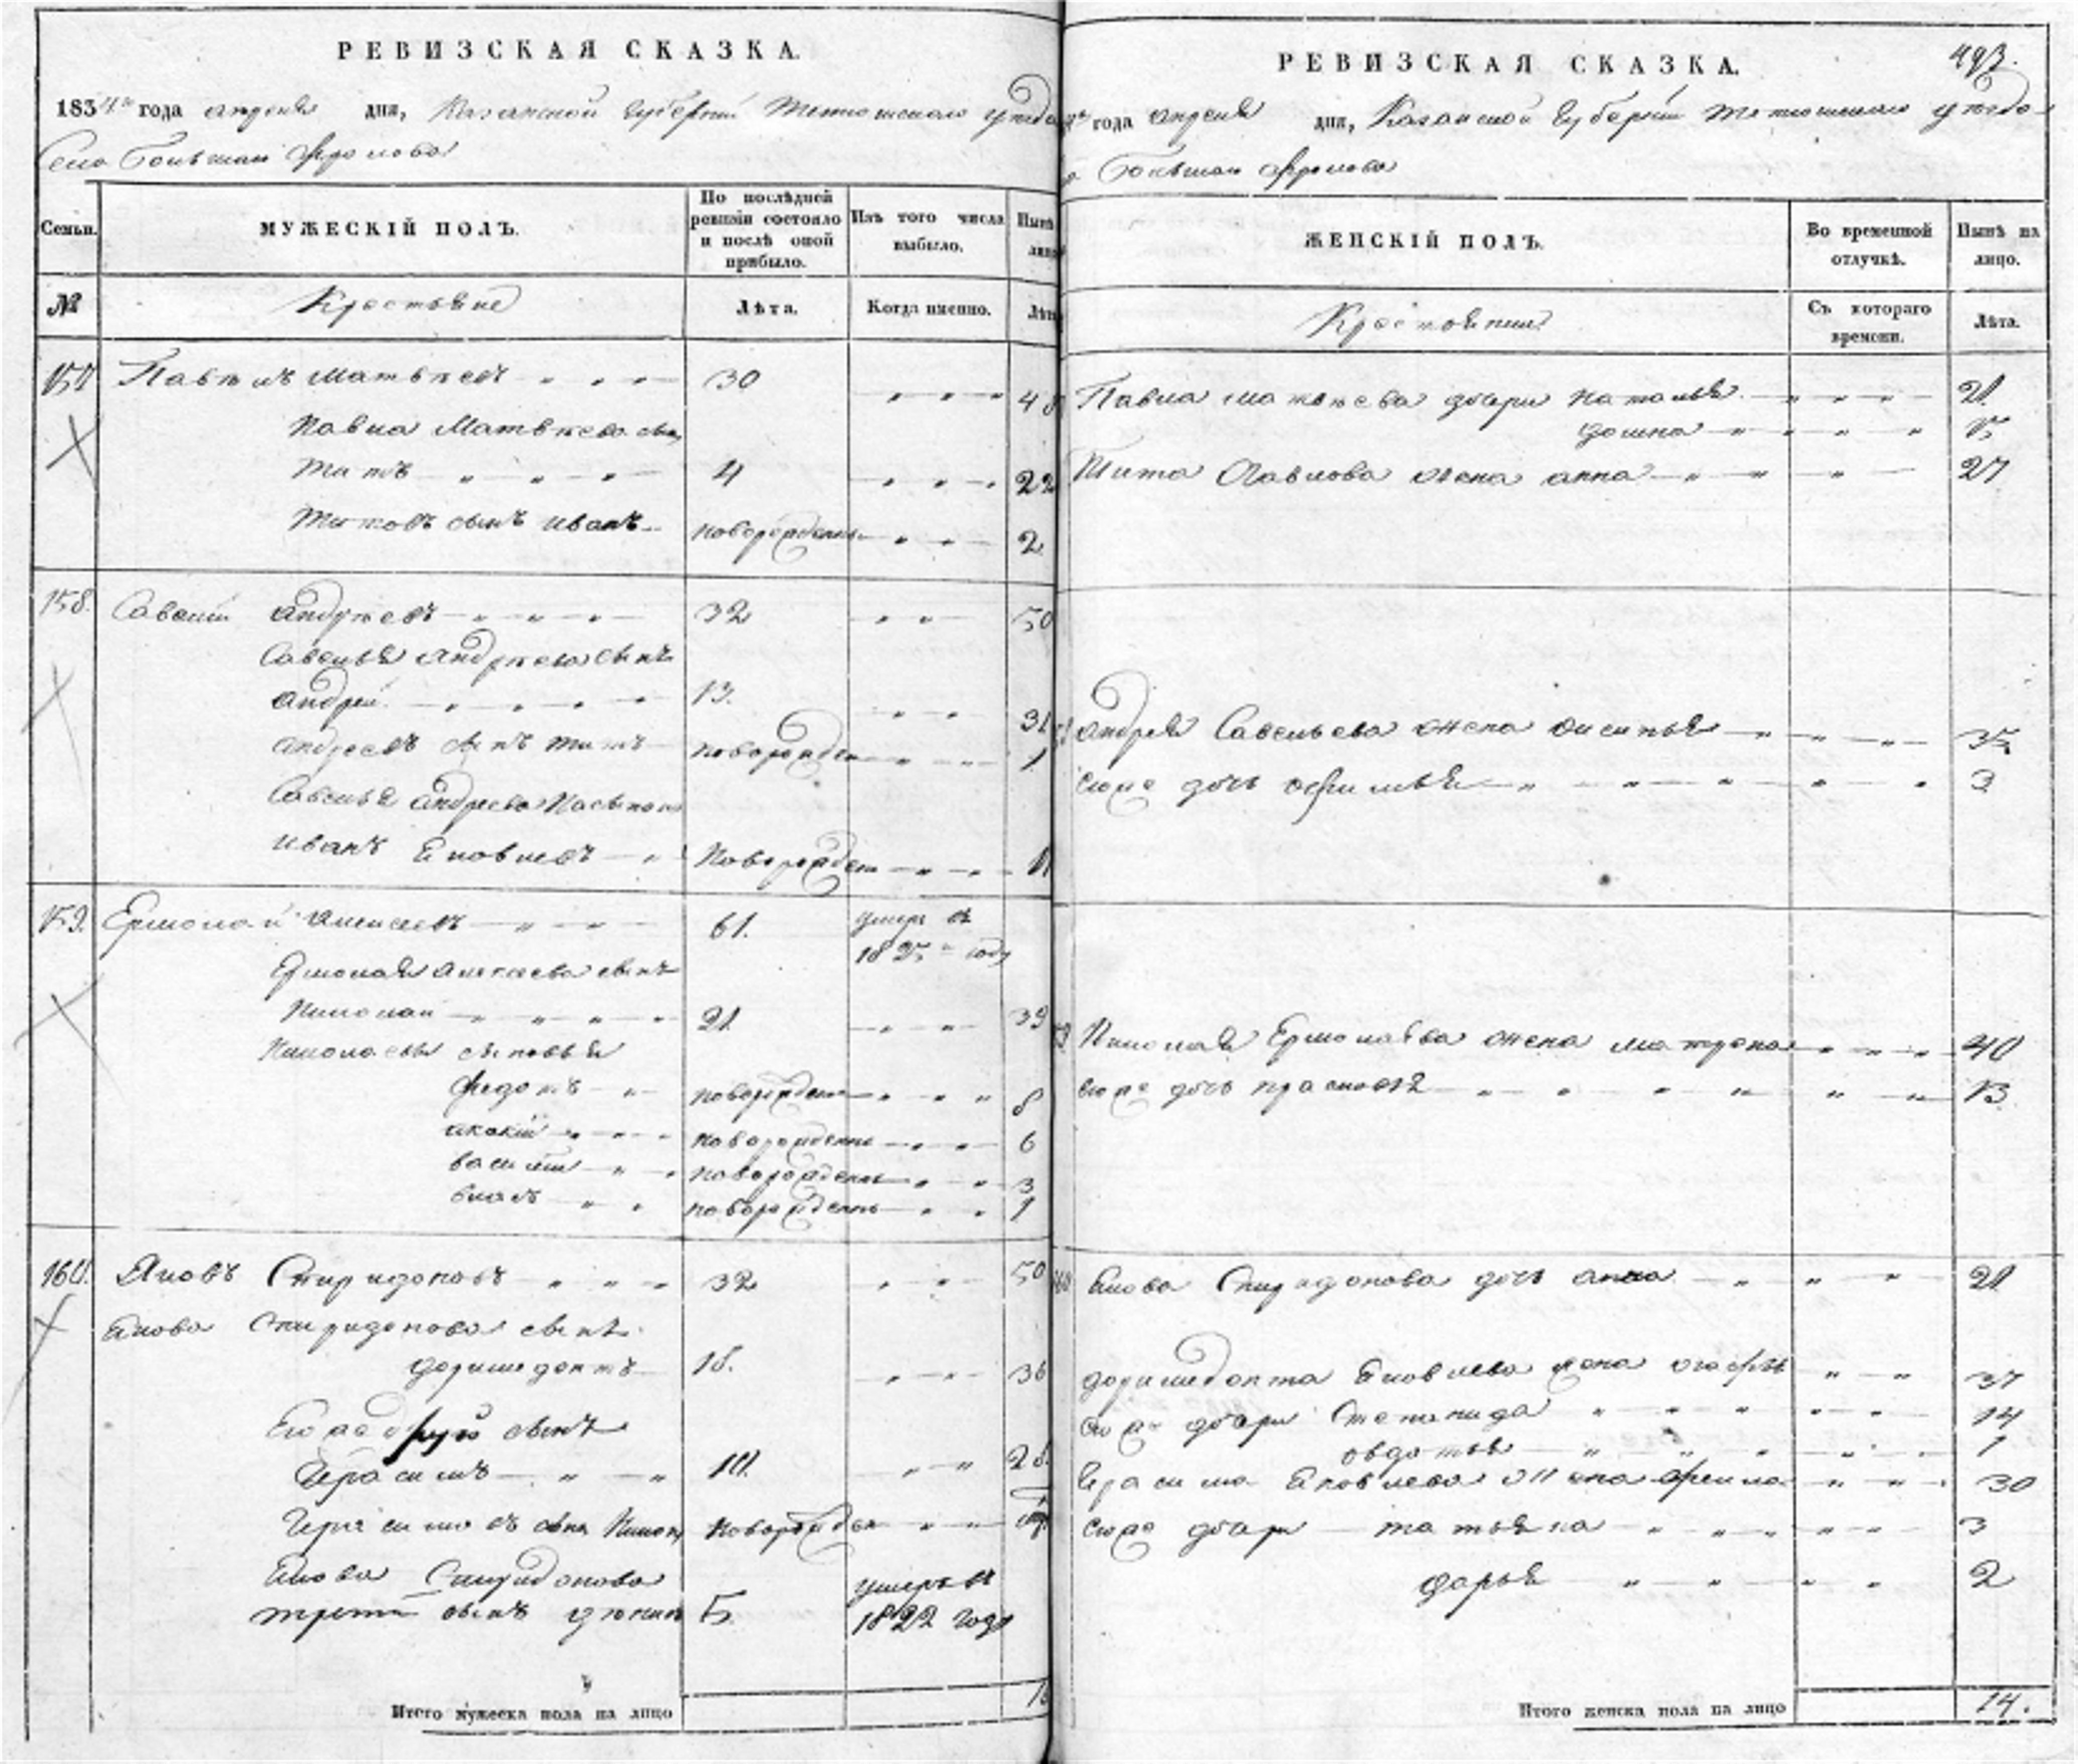 РЕВИЗСКАЯ СКАЗКА.
1834го года апреля дня, Казанской Губернии Тетюшскаго уезда
Села Большаи Фролова
Семьи.
МУЖЕСКІЙ ПОЛЪ.
По послѣдней ревизіи состояло и послѣ оной прибыло.
Изъ того числа выбыло.
Нынѣ лицо
№
Крестьяне
Лѣта.
Когда именно.
Лѣта
157 Павилъ Матвѣевъ 30 48
Павла Матвѣева сынъ
Титъ 4 22
Титовъ сынъ иванъ новорожденны 2
158. Савелiй андрѣевъ 32 50
Савелья андрѣева сынъ
андрей 13. 31
андреевъ сынъ титъ новорожден 1
Савелья андреева Пасынокъ
иванъ Яковлевъ Новорожден 11
159. Ермолай алексеевъ 61. умеръ въ
1825м году
Ермолая алексеева сынъ
Николаи 21 39
Николаевы сыновья
федотъ новорожден 8
акакiй новорожденны 6
василiй новорожденны 3
власъ новорожденны 1
160. Яковъ Спиридоновъ 32 50
Якова Спиридонова сынъ
доримедонтъ 18. 36
Его же другой сынъ
Герасимъ 10. 28.
Герасимовъ сынъ Новорожден
Якова Спиридонова умеръ въ
третiй сынъ 5. 1822 году
Итого мужеска пола на лицо
РЕВИЗСКАЯ СКАЗКА.
493.
года апреля дня, Казанской Губернии Тетюшскаго уезда
Большаи Фролова
ЖЕНСКІЙ ПОЛЪ.
Во временной отлучкѣ.
Нынѣ на лицо.
Крестьянки
Съ котораго времени.
Лѣта.
Павла матвѣева дочери наталья 21
15
Тита Павлова жена анна 27
андрея Савельева жена аксинья 35
его же дочь офимья 3
Николая Ермолаева жена матрена 40
его же дочь прасковья 13
160 Якова Спиридонова дочь анна 21
доримедонта Яковлева жена агафья 37
его же дочери Степанида 14
овдотья 1
Герасима Яковлева жена фекла 30
его же дочери татьяна 3
дарья 2
Итого женска пола на лицо 14.